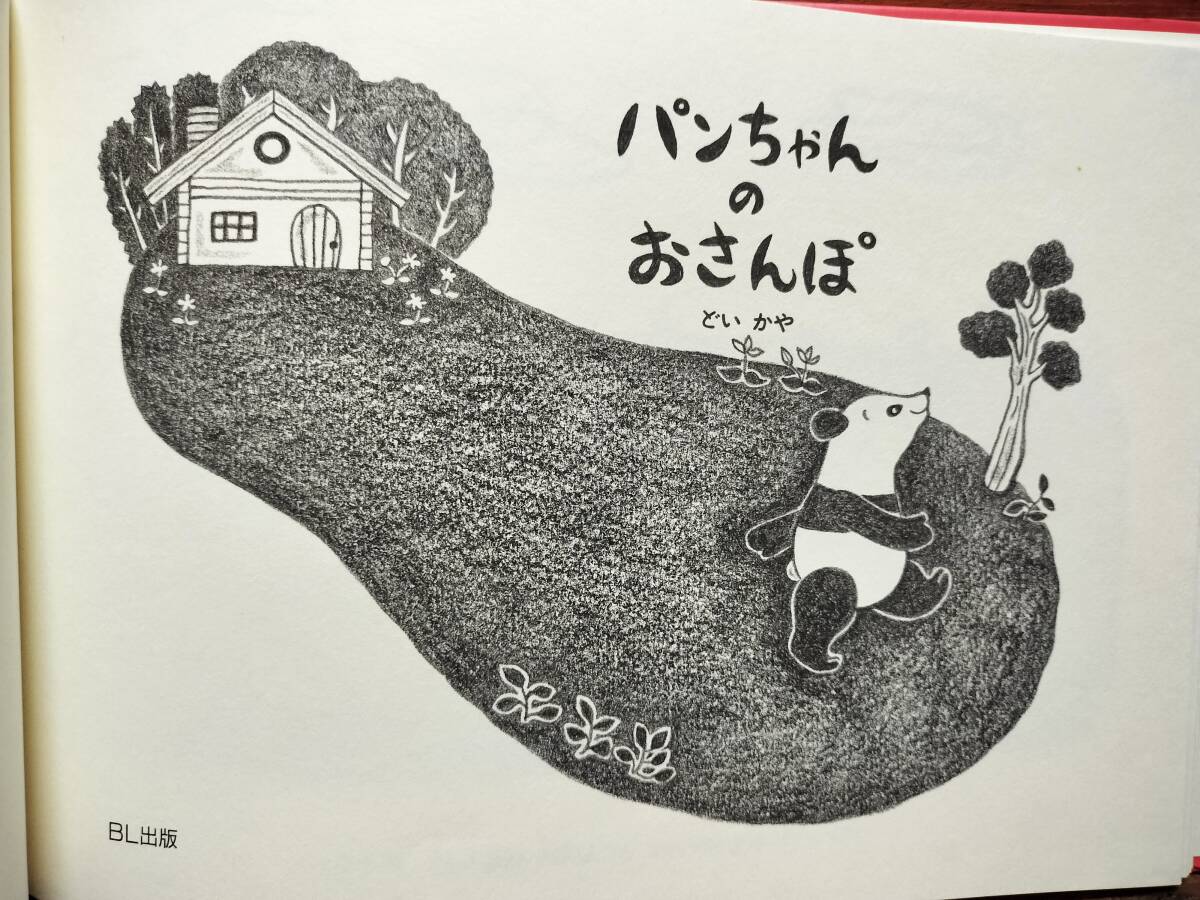 パンちゃん
の
おさんぽ
どい かや
BL出版